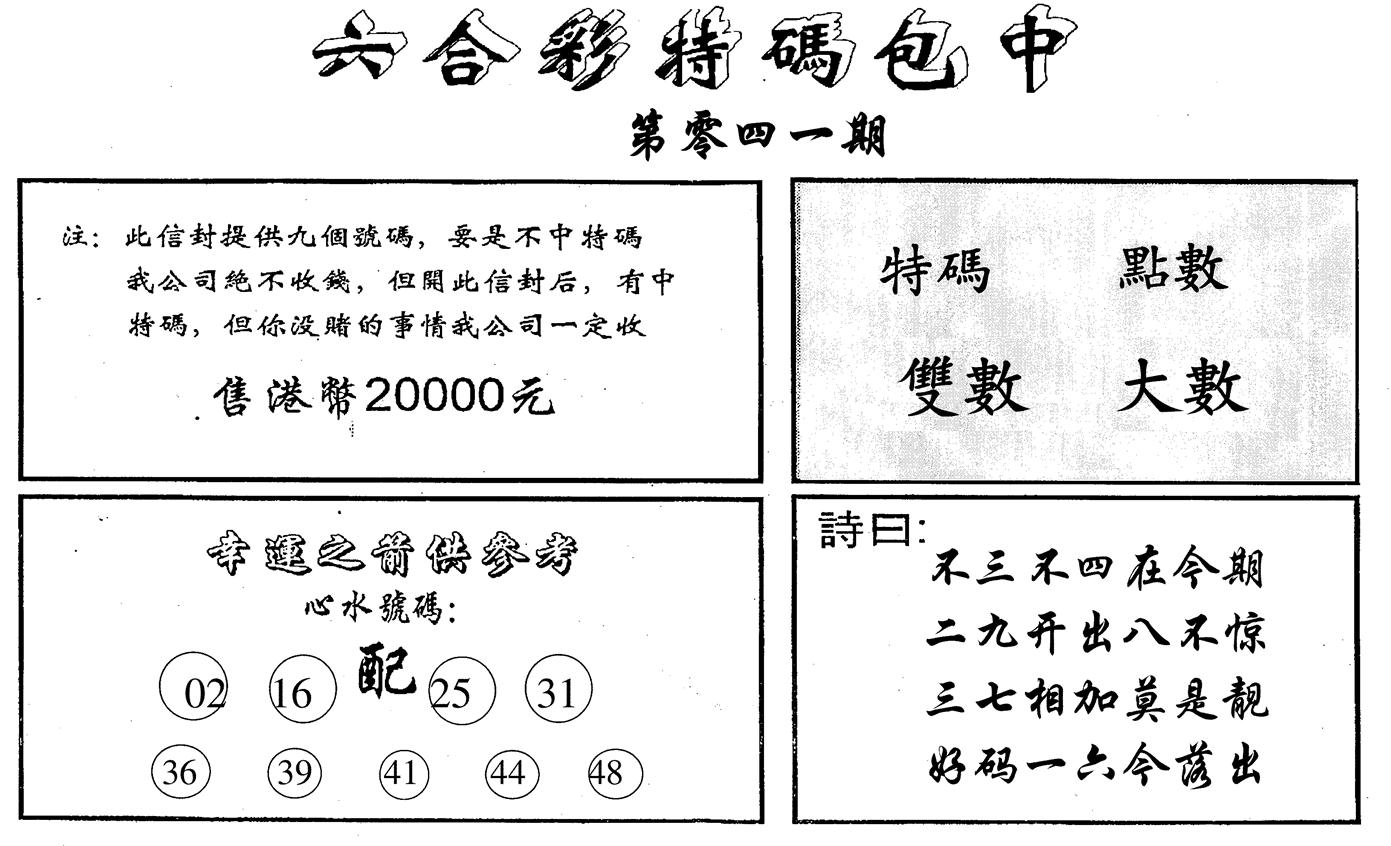 六合彩特碼包中
第零四一期
注：此信封提供九個號碼，要是不中特碼
我公司絕不收錢，但開此信封后，有中
特碼，但你没賭的事情我公司一定收
售港幣20000元
特碼 點數
雙數 大數
幸運之箭供參考
心水號碼：
02 16 配 25 31
36 39 41 44 48
詩曰：
不三不四在今期
二九开出八不惊
三七相加莫是靚
好码一六今落出